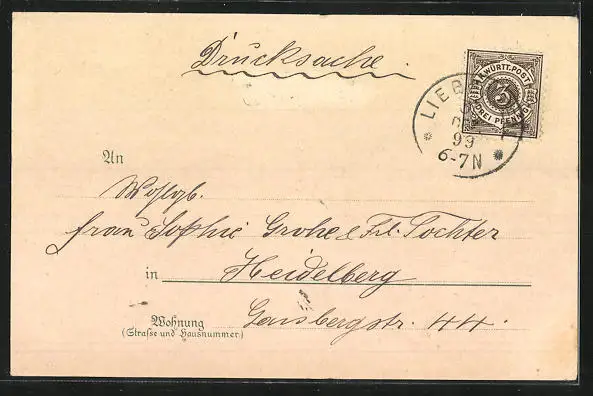 Drucksache.
K. WÜRTT. POST
3
DREI PFENNIG
LIEB
99
6-7N
An
Wohlgb.
Frau Sophie Grohe & Frl. Tochter
in Heidelberg
Wohnung Gaisbergstr. 44.
(Straße und Hausnummer)